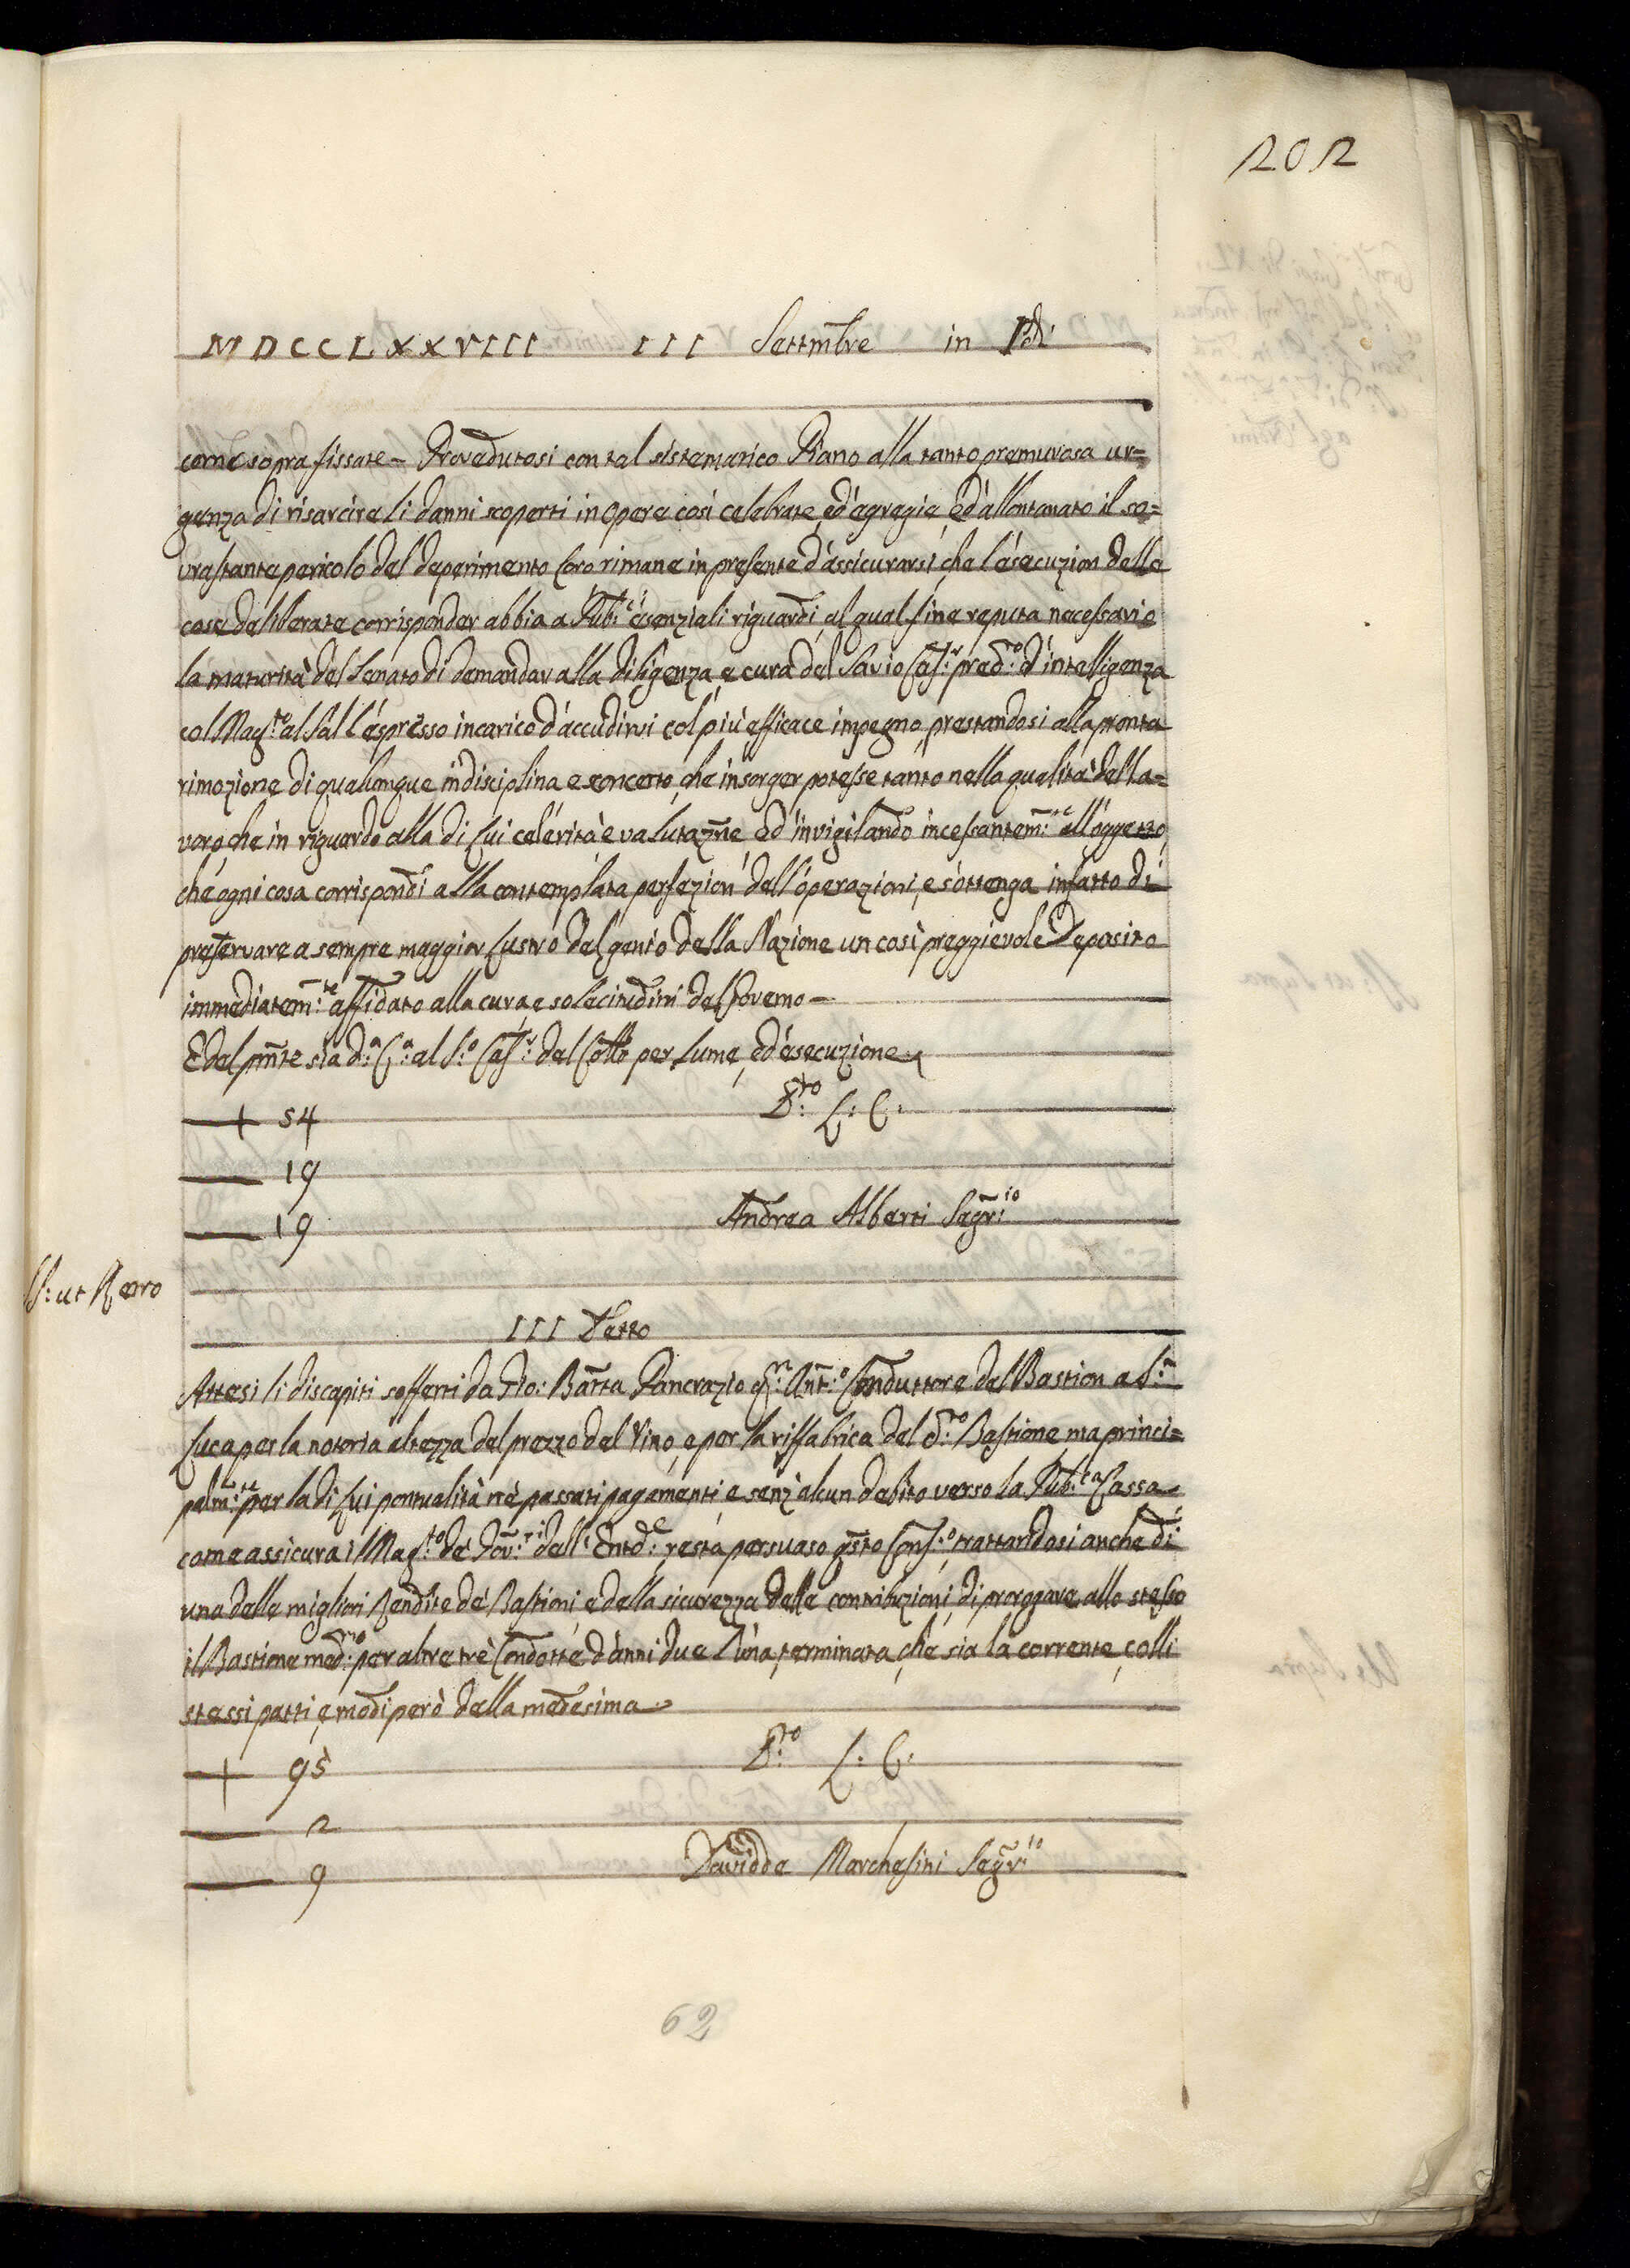 202
MDCCLXXVIII III Settmbre in Pdi
come sopra fissate = Provedutosi con tal sistematico Piano alla tanto premurosa ur=
genza di risarcire li danni scoperti in opere così celebrate, ed egregie, ed allontanato il so=
vrastante pericolo del deperimento loro rimane in presente d'assicurarsi, che l'esecuzion delle
cose deliberate corrisponder abbia a Pub:ci esenziali riguardi, al qual fine reputa necessario
la maturità del Senato di demandar alla diligenza, e cura del Savio Cass:r pred:o d'intelligenza
col Mag:to al Sal l'espresso incarico d'accudirvi col più efficace impegno, prestandosi alla pronta
rimozione di qualunque indisciplina e sconcerto, che insorger potesse tanto nella qualità del la=
voro, che in riguardo alla di lui celerità e valutazne, ed invigilando incessantem:te all'oggetto,
che ogni cosa corrispondi alla contemplata perfezion dell'operazioni, e s'ottenga infatto di
preservare a sempre maggior lustro del genio della Nazione un così preggievole Deposito
immediatem:te affidato alla cura, e solecitudini del Governo =
E del pnte sia d:a C:a al S:o Cass:r del Collo per lume, ed esecuzione
+ 54 D:to L: C:
19
19 Andrea Alberti Segr:io
SS: ut Retro
III Detto
Attesi li discapiti sofferti da Gio: Batta Pancrazio qm: Ant:o Conduttore del Bastion a S:n
Luca per la notoria altezza del prezzo del Vino, e per la riffabrica del d:to Bastione, ma princi=
palm:te per la di lui pontualità ne' passati pagamenti, e senz'alcun debito verso la Pub:ca Cassa
come assicura il Mag:to de' Gov:ri dell'Entd:e, resta persuaso qsto Cons:o, trattandosi anche di
una delle migliori Rendite de' Bastioni, e della sicurezza delle contribuzioni, di prorogare allo stesso
il Bastione med:mo per altre trè Condotte d'anni due l'una, terminata, che sia la corrente, colli
stessi patti, e modi però della medesima
+ 95 D:to L: C:
2
9 Davidde Marchesini Segr:io
62